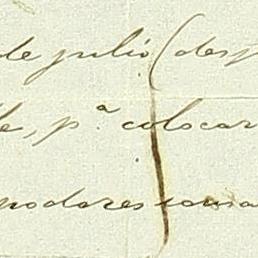 de julio (desp
le, p.ª colocar
nodores soma